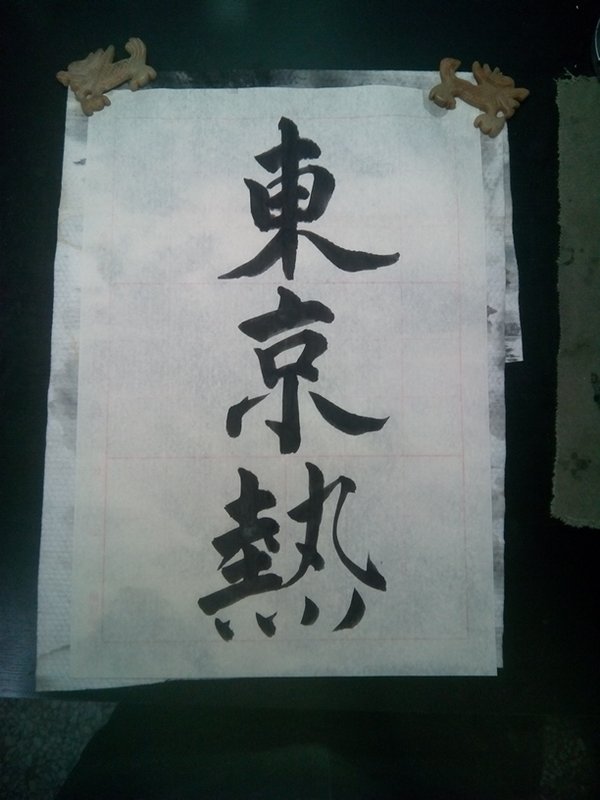 東京熱